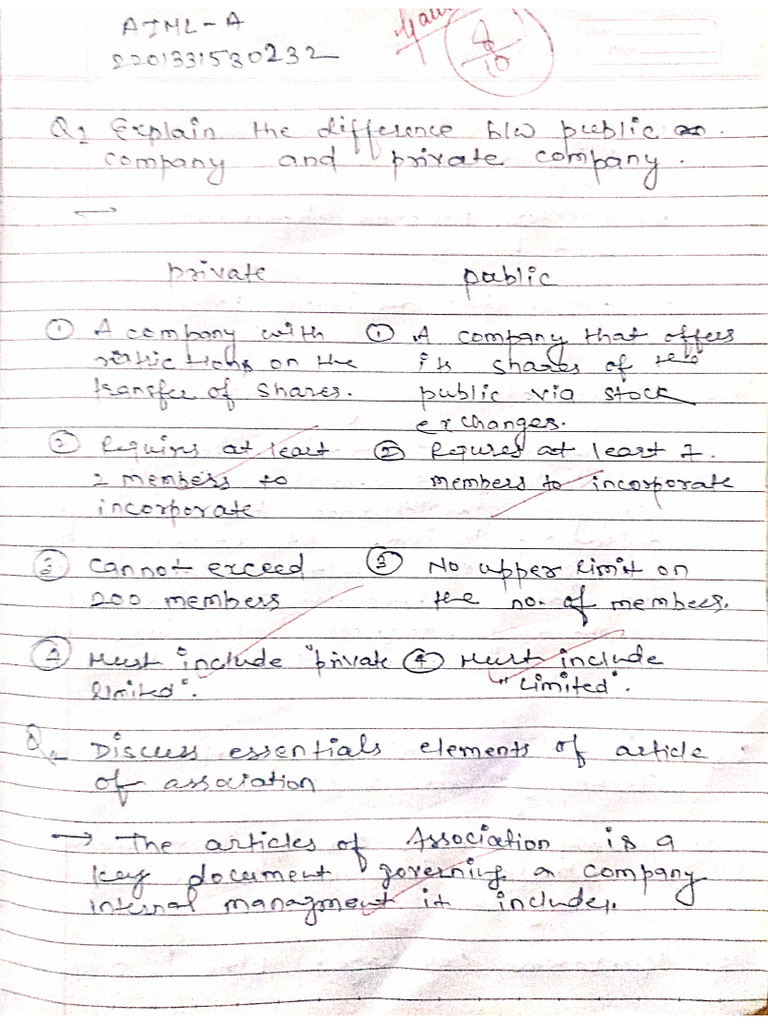 AIML-A
2201331530232
4/10
Q1 Explain the difference b/w public
company and private company.
private public
① A company with ① A company that offers
on the its shares of the
transfer of shares. public via stock
exchanges.
② Requires at least ② Requres at least 7.
2 members to members to incorporate
incorporate
③ Cannot exceed ③ No upper limit on
200 members the no. of members.
④ Must include "private ④ Must include
limited". "Limited".
Q2 Discuss essentials elements of article
of association
→ The articles of Association is a
key document governing a company
internal managment it includes.